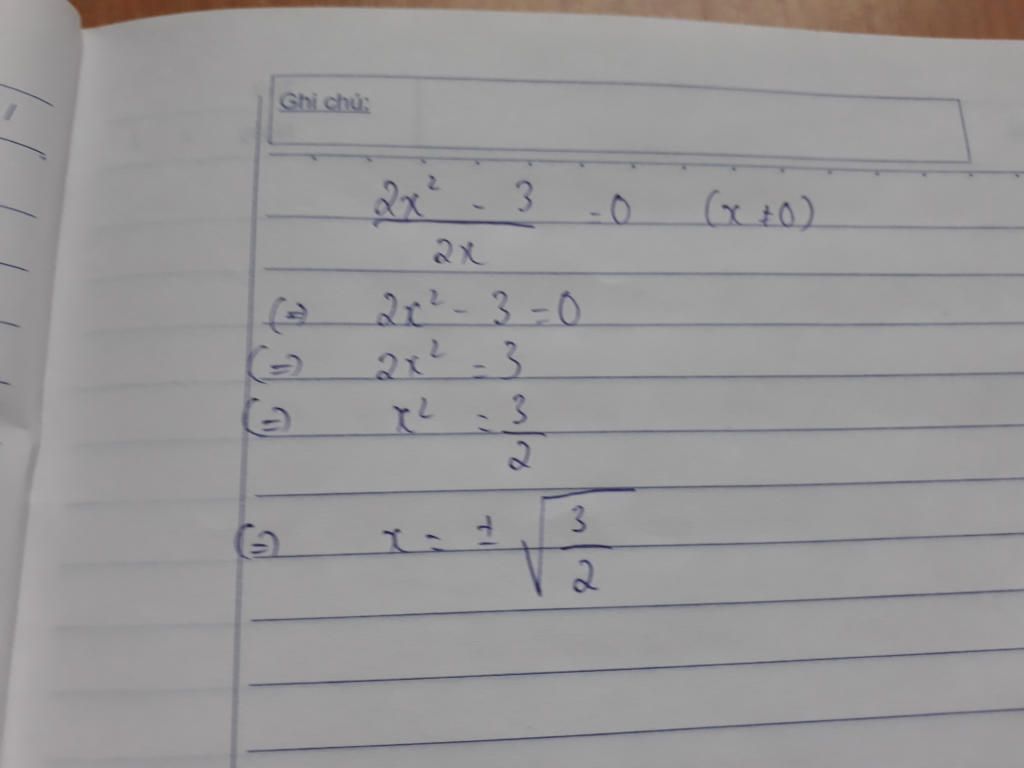 Ghi chú:
2x² - 3
2x
= 0 (x ≠ 0)
(=) 2x² - 3 = 0
(=) 2x² = 3
(=) x² = 3/2
(=) x = ± √(3/2)